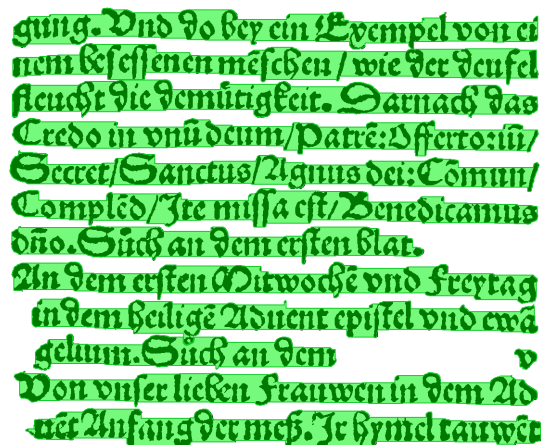 gung. Vnd do bey ein Exempel von ei
nem besessenen mēschen / wie der deufel
fleucht die demütigkeit. Darnach das
Credo in vnū deum/Patrē: Offerto:iū/
Secret/Sanctus/Agnus dei: Cōmun/
Complēd/Ite missa est/Benedicamus
dño. Sůch an dem ersten blat.
An dem ersten Mitwochē vnd Freytag
in dem heiligē Aduent epistel vnd ewā
gelium. Sůch an dem v
Von vnser lieben Frauwen in dem Ad
uēt Anfang der meß. Ir hymel tauwēt